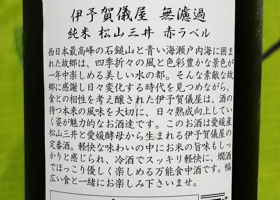 伊予賀儀屋 無濾過
純米 松山三井 赤ラベル
西日本最高峰の石鎚山と青い海瀬戸内海に囲ま
れた故郷は、四季折々の風と色彩豊かな景色が
一年中楽しめる美しい水の都。そんな素敵な故
郷に感謝し日々変化する時代を見つめながら、
食との相性を考え醸された伊予賀儀屋は、酒の
持つ本来の風味を大切に、日々熟成向上してい
く姿が魅力的なお酒達です。このお酒は愛媛産
松山三井と愛媛酵母から生まれる伊予賀儀屋の
定番酒。軽快な味わいの中にお米の旨味もしっ
かりと感じられ、冷酒でスッキリ軽快に、燗酒
でほっこり優しく楽しめる万能食中酒です。幅
広い食と一緒にお楽しみ下さいませ。